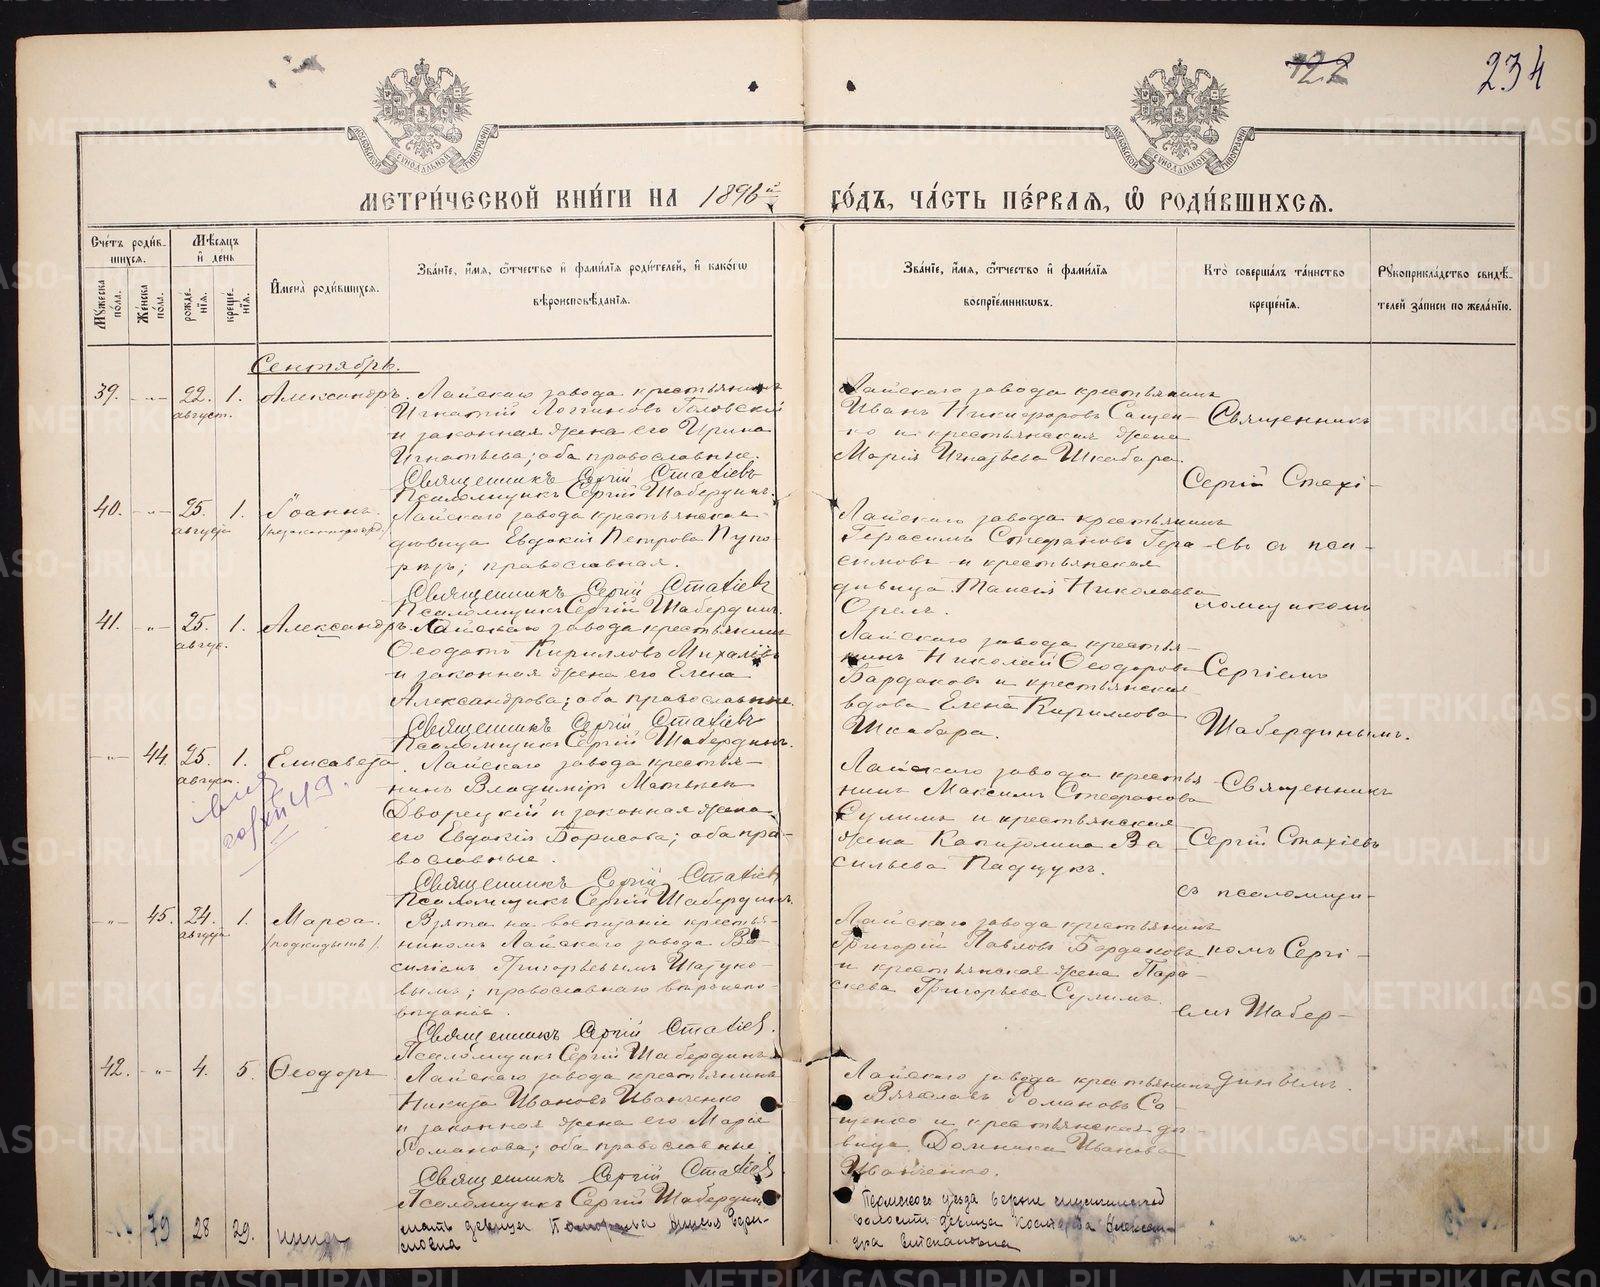 122
234
МЕТРИ́ЧЕСКОЙ КНИ́ГИ НА 1896й
ГО́ДЪ, ЧА́СТЬ ПЕ́РВАѦ, Ѽ РОДИ́ВШИХСѦ.
Сче́тъ роди́в-
шихсѧ.
Мѣ́сѧцъ
и҆ день
Мꙋжеска
по́ла.
Же́нска
по́ла.
рожде́-
нїѧ.
креще́-
нїѧ.
И҆мена̀ роди́вшихсѧ.
Зва́нїе, и҆́мѧ, ѻ҆́тчество и҆ фами́лїѧ роди́телей, и҆ како́гѡ
вѣроисповѣ́данїѧ.
Зва́нїе, и҆́мѧ, ѻ҆́тчество и҆ фами́лїѧ
воспрїе́мникѡвъ.
Кто̀ соверша́лъ та́инство
креще́нїѧ.
Рꙋкоприкла́дство свидѣ́-
телей за́писи по жела́нїю.
Сентябрь.
39. 22. августа. 1. Александръ.
Лайскаго завода крестьянинъ
Игнатій Логиновъ
и законная жена его Ирина
Игнатьева; оба православные.
Священникъ Сергій Стахіевъ
Псаломщикъ Сергій Шабердинъ.
Лайскаго завода крестьянинъ
Иванъ Никифоровъ Сащен-
ко и крестьянская жена
Марія Игнатьева Шкабара.
Священникъ
Сергій Стахі-
40. 25. августа 1. Іоаннъ.
Лайскаго завода крестьянская
дѣвица Евдокія Петрова
православная.
Священникъ Сергій Стахіевъ
Псаломщикъ Сергій Шабердинъ.
Лайскаго завода крестьянинъ
Герасимъ Стефановъ Гера-
симовъ и крестьянская
дѣвица Таисія Николаева
Орелъ.
евъ съ пса-
ломщикомъ
41. 25. август. 1. Александръ.
Лайскаго завода крестьянинъ
Ѳеодотъ Кирилловъ Михалевъ
и законная жена его Елена
Александрова; оба православные.
Священникъ Сергій Стахіевъ
Псаломщикъ Сергій Шабердинъ.
Лайскаго завода крестья-
нинъ Николай Ѳеодоровъ
Бардаковъ и крестьянская
вдова Елена Кириллова
Шкабара.
Сергіемъ
Шабердинымъ.
44. 25. август. 1. Елисавета.
Лайскаго завода крестья-
нинъ Владиміръ Матвѣевъ
Дворецкій и законная жена
его Евдокія Борисова; оба пра-
вославные.
Священникъ Сергій Стахіевъ
Псаломщикъ Сергій Шабердинъ.
Лайскаго завода крестья
нинъ Максимъ Стефановъ
Сулимъ и крестьянская
жена Капитолина Ва
сильева Падщукъ.
Священникъ
Сергій Стахіевъ
съ псаломщи-
45. 24. августа 1. Марѳа.
(подкидышъ).
Взята на воспитаніе крестья-
ниномъ Лайскаго завода Ва-
силіемъ Григорьевымъ
вымъ; православнаго вѣроиспо-
вѣданія.
Священникъ Сергій Стахіев.
Псаломщикъ Сергій Шабердинъ
Лайскаго завода крестьянинъ
Григорій Павловъ Бардаковъ
и крестьянская жена Пара-
скева Григорьева Сулимъ.
комъ Сергі-
емъ Шабер-
42. 4. 5. Ѳеодоръ
Лайскаго завода крестьянинъ
Никита Ивановъ Иванченко
и законная жена его Марія
Романова; оба православные.
Священникъ Сергій Стахіев
Псаломщикъ Сергій Шабердинъ
Лайскаго завода крестьянинъ
Вячеславъ Романовъ Са-
щенко и крестьянская дѣ-
вица Домника Иванова
Иванченко.
динымъ.
79 28 29. Нина
мать девица
Пермского уезда
волости девица